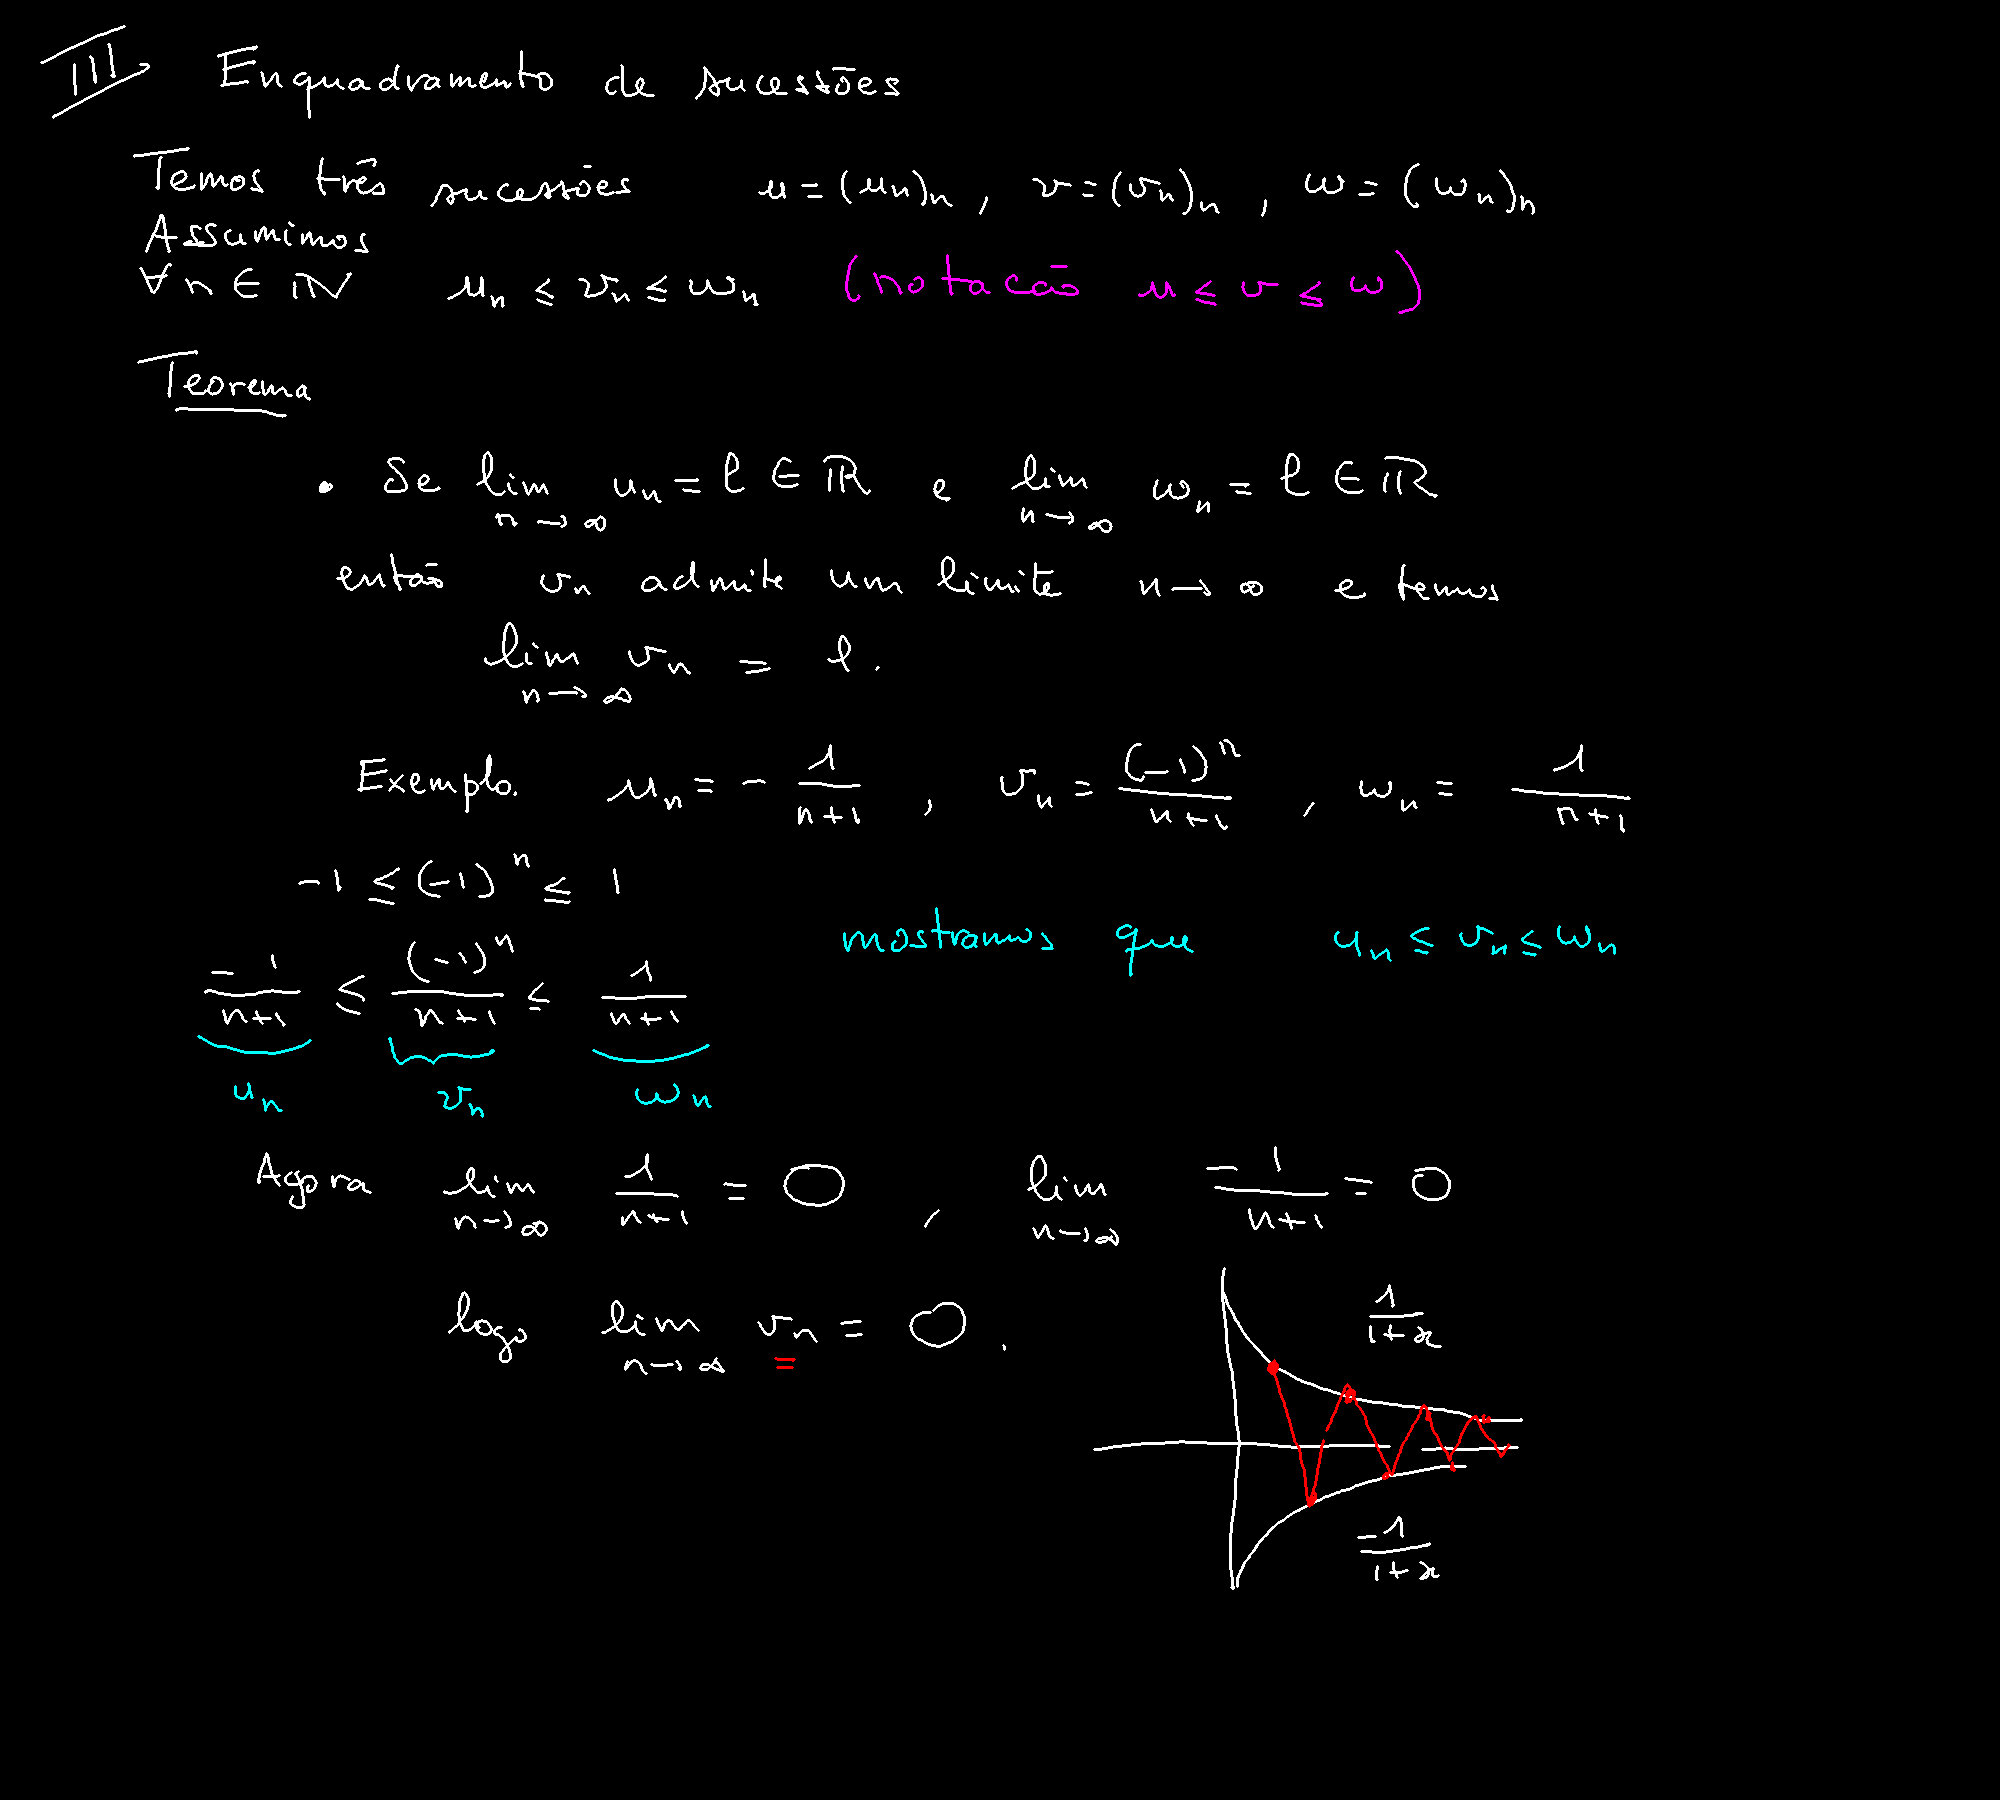 III Enquadramento de sucessões
Temos três sucessões u = (u_n)_n , v = (v_n)_n , w = (w_n)_n
Assumimos
∀ n ∈ ℕ u_n ≤ v_n ≤ w_n (notacão u ≤ v ≤ w)
Teorema
• Se lim_{n→∞} u_n = l ∈ ℝ e lim_{n→∞} w_n = l ∈ ℝ
então v_n admite um limite n → ∞ e temos
lim_{n→∞} v_n = l.
Exemplo. u_n = - 1/(n+1) , v_n = (-1)^n/(n+1) , w_n = 1/(n+1)
-1 ≤ (-1)^n ≤ 1
mostramos que u_n ≤ v_n ≤ w_n
-1/(n+1) ≤ (-1)^n/(n+1) ≤ 1/(n+1)
u_n v_n w_n
Agora lim_{n→∞} 1/(n+1) = 0 , lim_{n→∞} -1/(n+1) = 0
logo lim_{n→∞} v_n = 0 .
1/(1+x)
-1/(1+x)